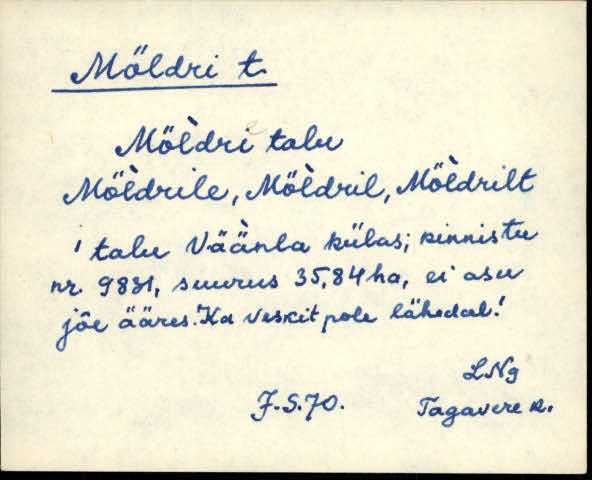 Möldri t.
Mö̀ldri talu
Mö̀ldrile, Mö̀ldril, Mö̀ldrilt
' talu Väänla külas; kinnistu
nr. 9831, suurus 35,84 ha, ei asu
jõe ääres. Ka veskit pole lähedal.'
LNg
J.S.70. Tagavere k.